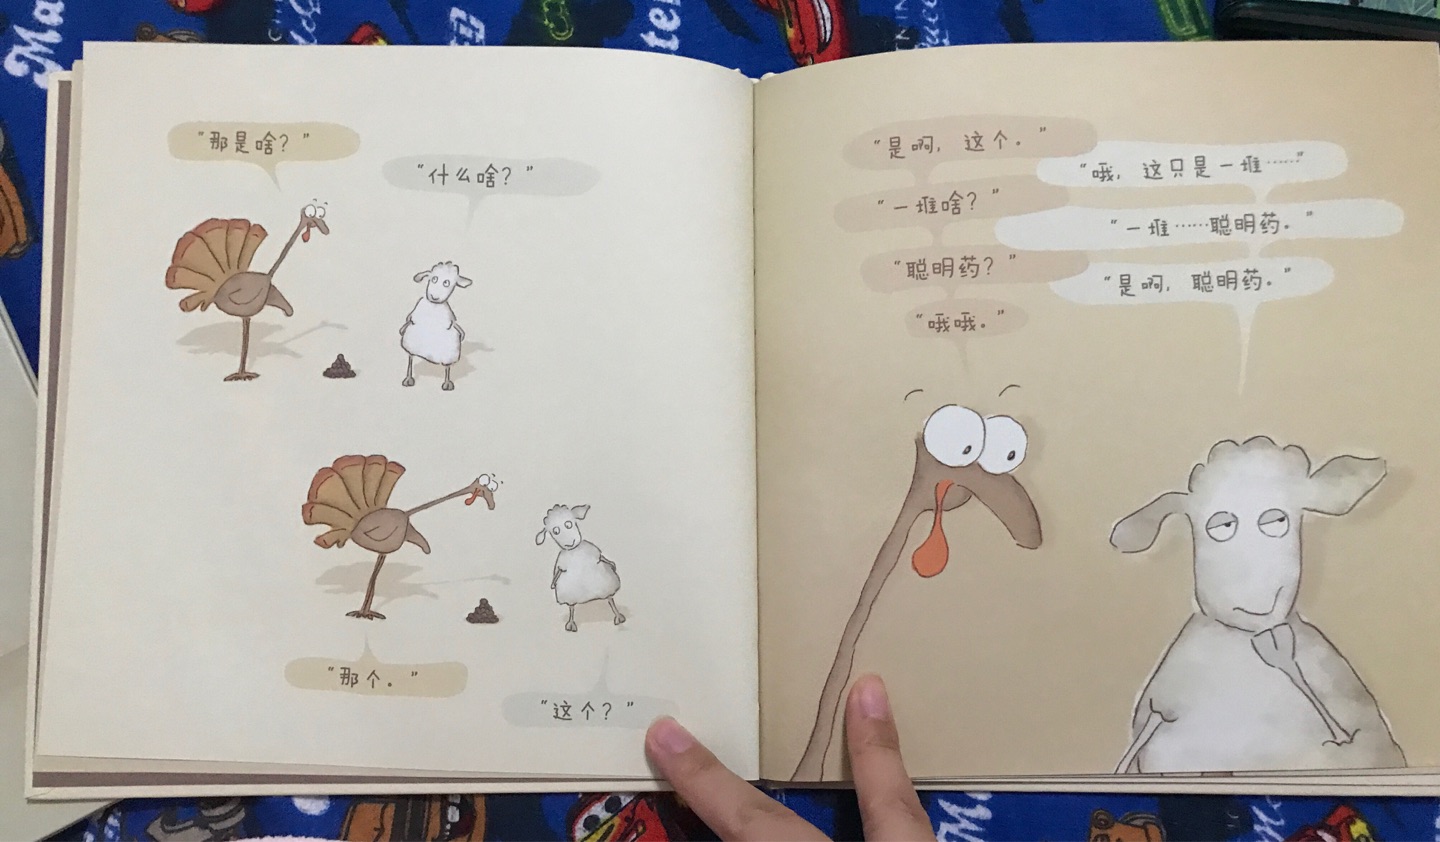 “那是啥？”
“什么啥？”
“那个。”
“这个？”
“是啊，这个。”
“哦，这只是一堆……”
“一堆啥？”
“一堆……聪明药。”
“聪明药？”
“是啊，聪明药。”
“哦哦。”